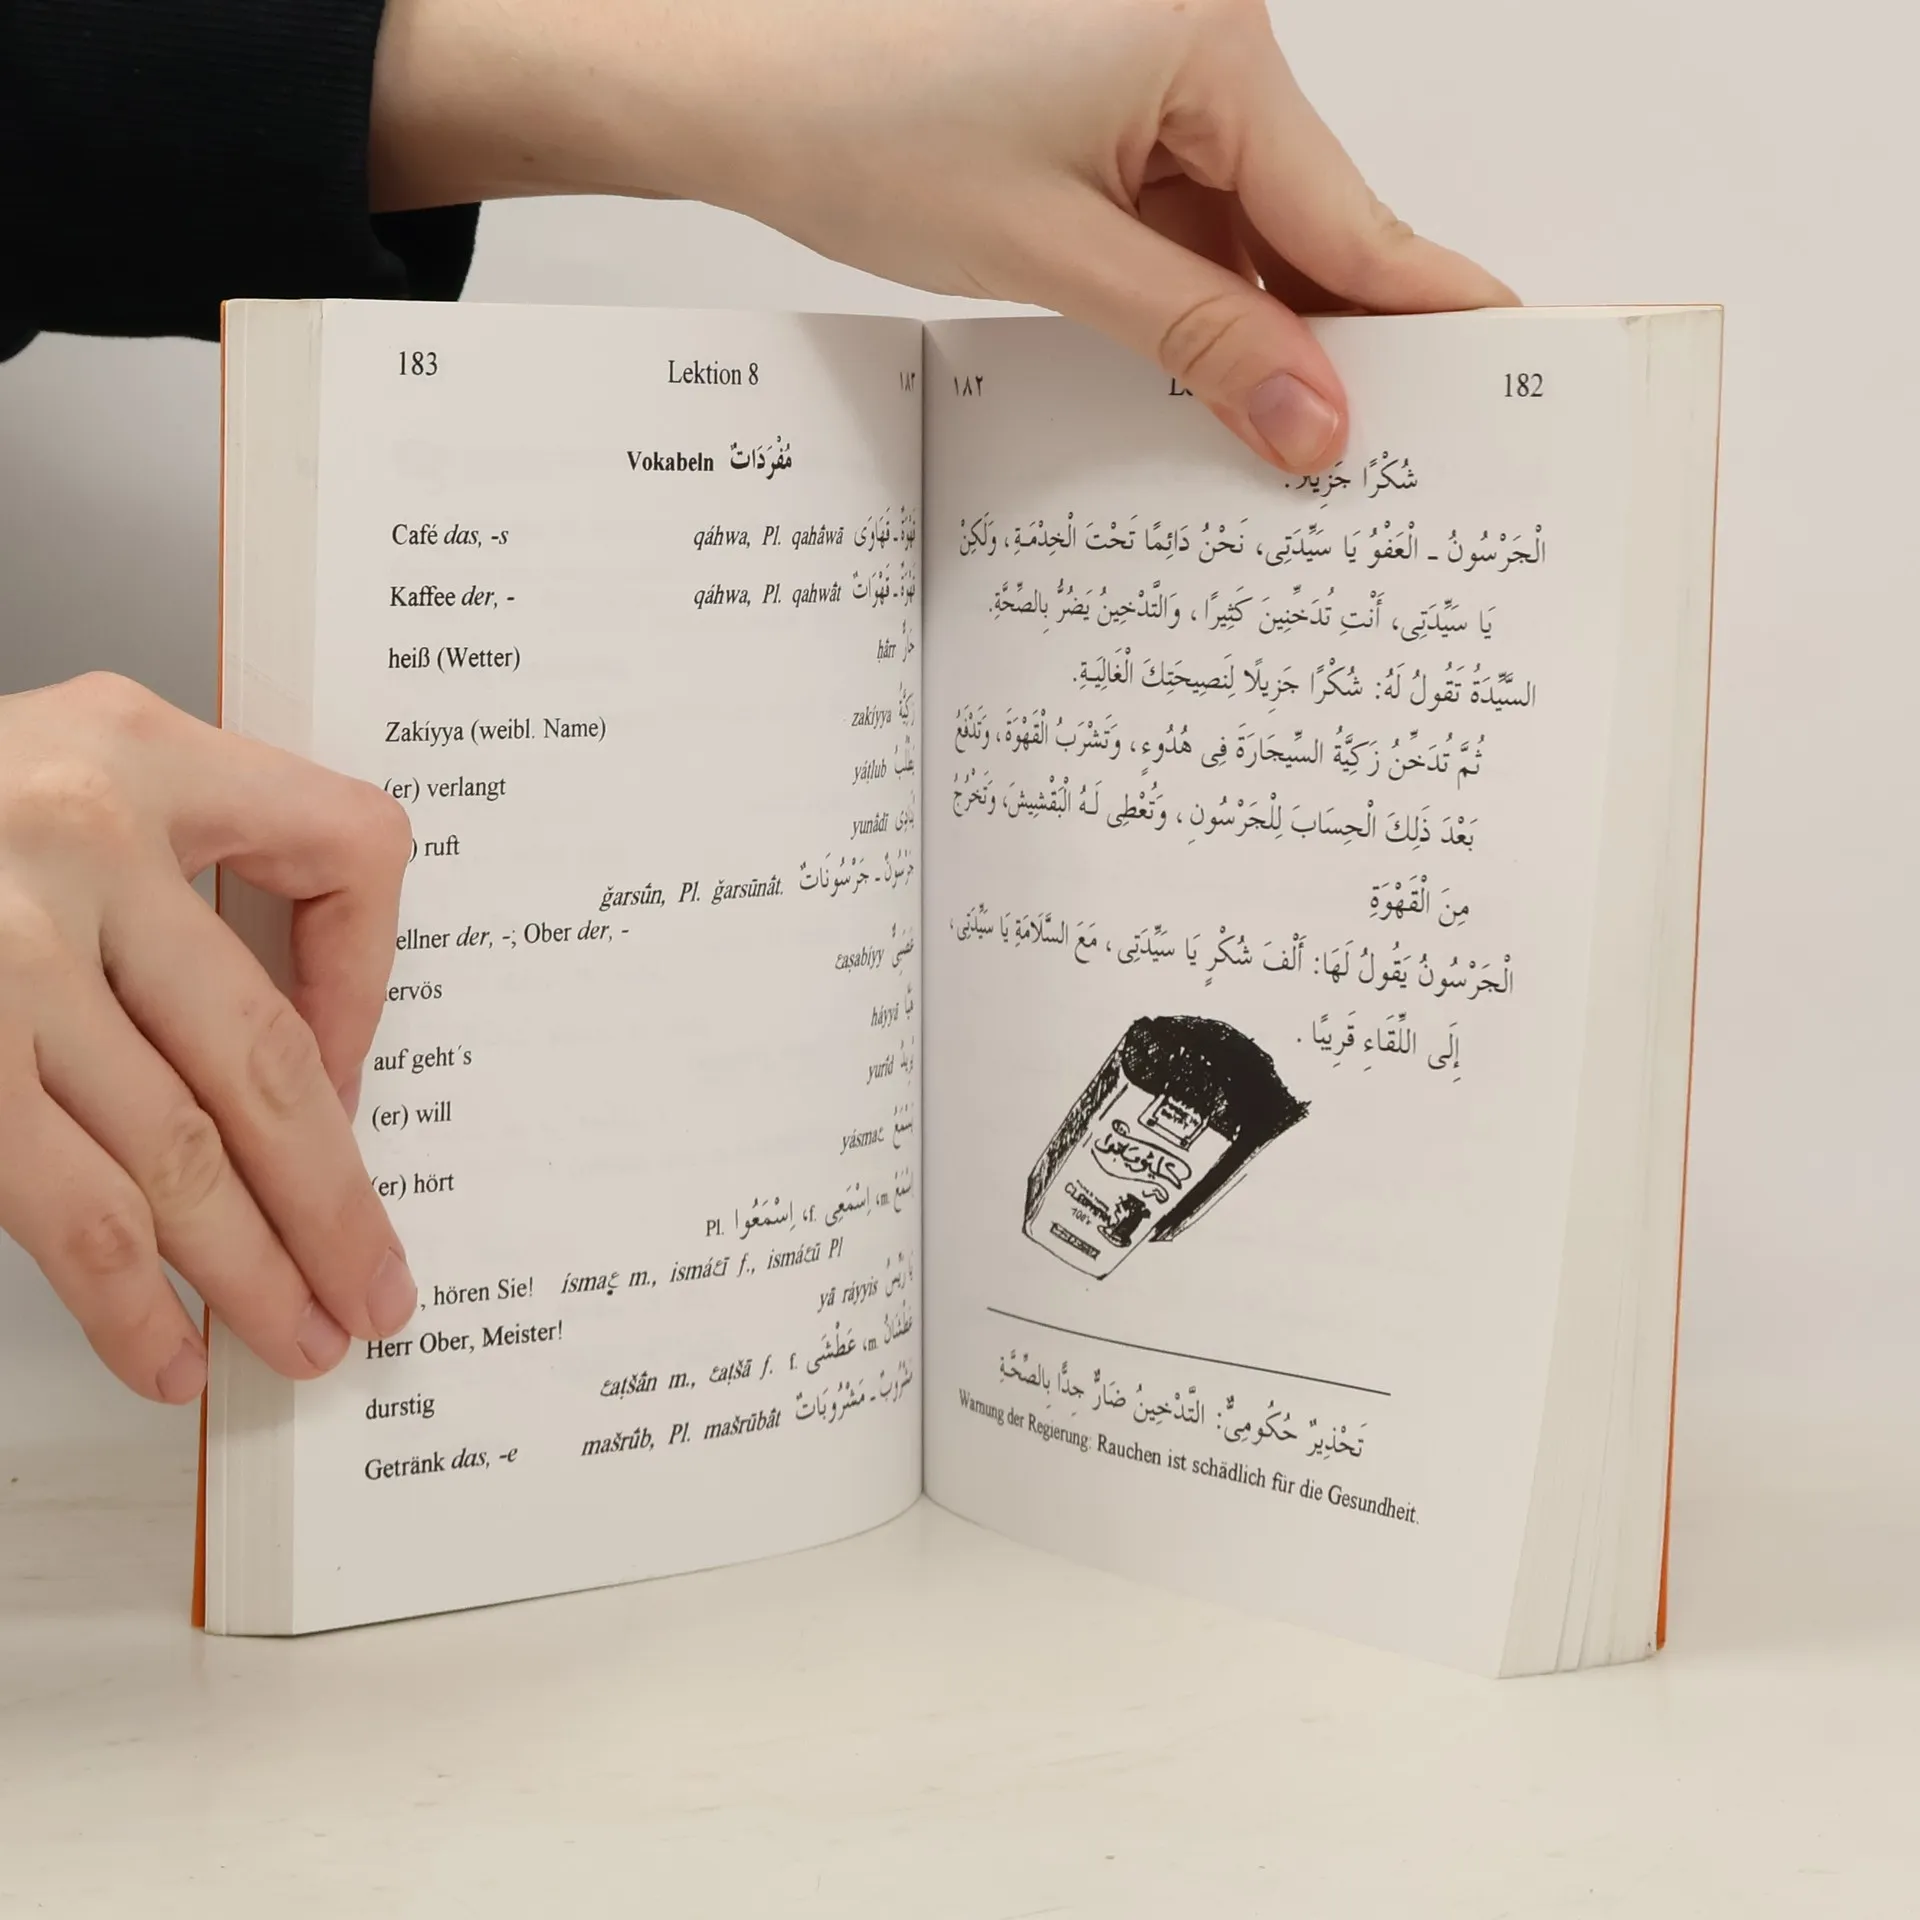 183 Lektion 8 ١٨٣
Vokabeln مُفْرَدَاتٌ
Café das, -s qáhwa, Pl. qahâwā قَهْوَةٌ ـ قَهَاوَى
Kaffee der, - qáhwa, Pl. qahwât قَهْوَةٌ ـ قَهْوَاتٌ
heiß (Wetter) ḥârr حَارٌّ
Zakíyya (weibl. Name) zakíyya زَكِيَّةُ
(er) verlangt yáṭlub يَطْلُبُ
) ruft yunâdī يُنَادِى
ǧarsûn, Pl. ǧarsūnât. جَرْسُونٌ ـ جَرْسُونَاتٌ
ellner der, -; Ober der, -
ervös عaṣabíyy عَصَبِىٌّ
auf geht´s háyyā هَيَّا
(er) will yurîd يُرِيدُ
(er) hört yásmaع يَسْمَعُ
اِسْمَعْ m.، اِسْمَعِى f.، اِسْمَعُوا Pl.
, hören Sie! ísmaع m., ismáعī f., ismáعū Pl
Herr Ober, Meister! yā ráyyis يَا رَيِّسُ
durstig عaṭšân m., عaṭšā f. عَطْشَانُ m.، عَطْشَى f.
Getränk das, -e mašrûb, Pl. mašrūbât مَشْرُوبٌ ـ مَشْرُوبَاتٌ
١٨٢ 182
شُكْرًا جَزِيلًا .
الْجَرْسُونُ ـ الْعَفْوُ يَا سَيِّدَتِى، نَحْنُ دَائِمًا تَحْتَ الْخِدْمَةِ، وَلَكِنْ
يَا سَيِّدَتِى، أَنْتِ تُدَخِّنِينَ كَثِيرًا، وَالتَّدْخِينُ يَضُرُّ بِالصِّحَّةِ.
السَّيِّدَةُ تَقُولُ لَهُ: شُكْرًا جَزِيلًا لِنَصِيحَتِكَ الْغَالِيَةِ.
ثُمَّ تُدَخِّنُ زَكِيَّةُ السِّيجَارَةَ فِى هُدُوءٍ، وَتَشْرَبُ الْقَهْوَةَ، وَتَدْفَعُ
بَعْدَ ذَلِكَ الْحِسَابَ لِلْجَرْسُونِ، وَتُعْطِى لَهُ الْبَقْشِيشَ، وَتَخْرُجُ
مِنَ الْقَهْوَةِ
الْجَرْسُونُ يَقُولُ لَهَا: أَلْفَ شُكْرٍ يَا سَيِّدَتِى، مَعَ السَّلَامَةِ يَا سَيِّدَتِى،
إِلَى اللِّقَاءِ قَرِيبًا .
تَحْذِيرٌ حُكُومِىٌّ: التَّدْخِينُ ضَارٌّ جِدًّا بِالصِّحَّةِ
Warnung der Regierung: Rauchen ist schädlich für die Gesundheit.